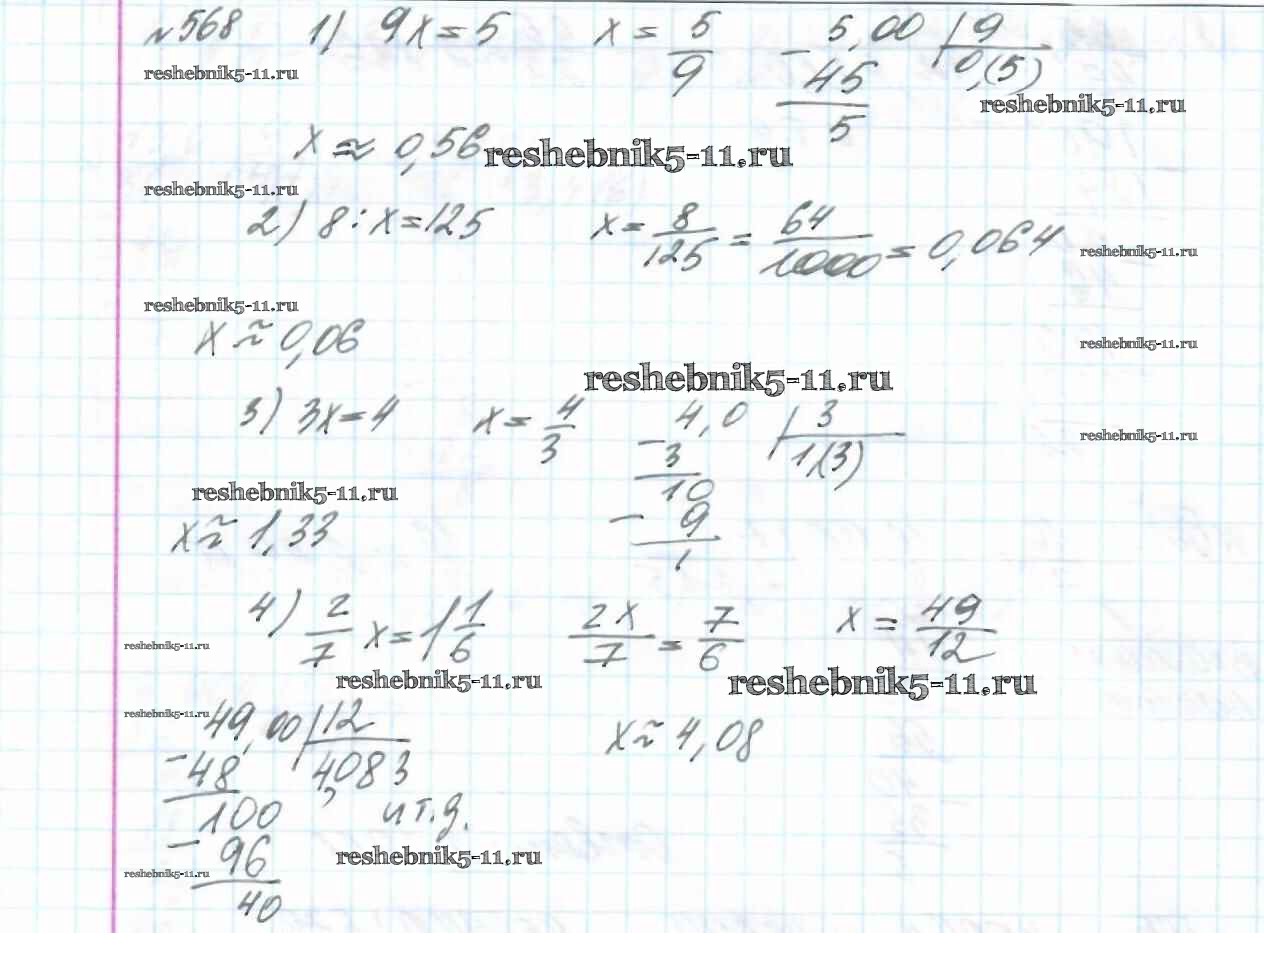 №568 1) 9x=5 x = 5/9 5,00 | 9
reshebnik5-11.ru - 45 0,(5)
reshebnik5-11.ru
5
x ≈ 0,56 reshebnik5-11.ru
reshebnik5-11.ru
2) 8:x=125 x = 8/125 = 64/1000 = 0,064 reshebnik5-11.ru
reshebnik5-11.ru
x ≈ 0,06 reshebnik5-11.ru
reshebnik5-11.ru
3) 3x=4 x = 4/3 4,0 | 3
- 3 1,(3) reshebnik5-11.ru
reshebnik5-11.ru 10
x ≈ 1,33 - 9
1
4) 2/7 x = 1 1/6 2x/7 = 7/6 x = 49/12
reshebnik5-11.ru
reshebnik5-11.ru reshebnik5-11.ru
reshebnik5-11.ru
49,00 | 12 x ≈ 4,08
- 48 4,083
100 и т.д.
- 96 reshebnik5-11.ru
reshebnik5-11.ru
40